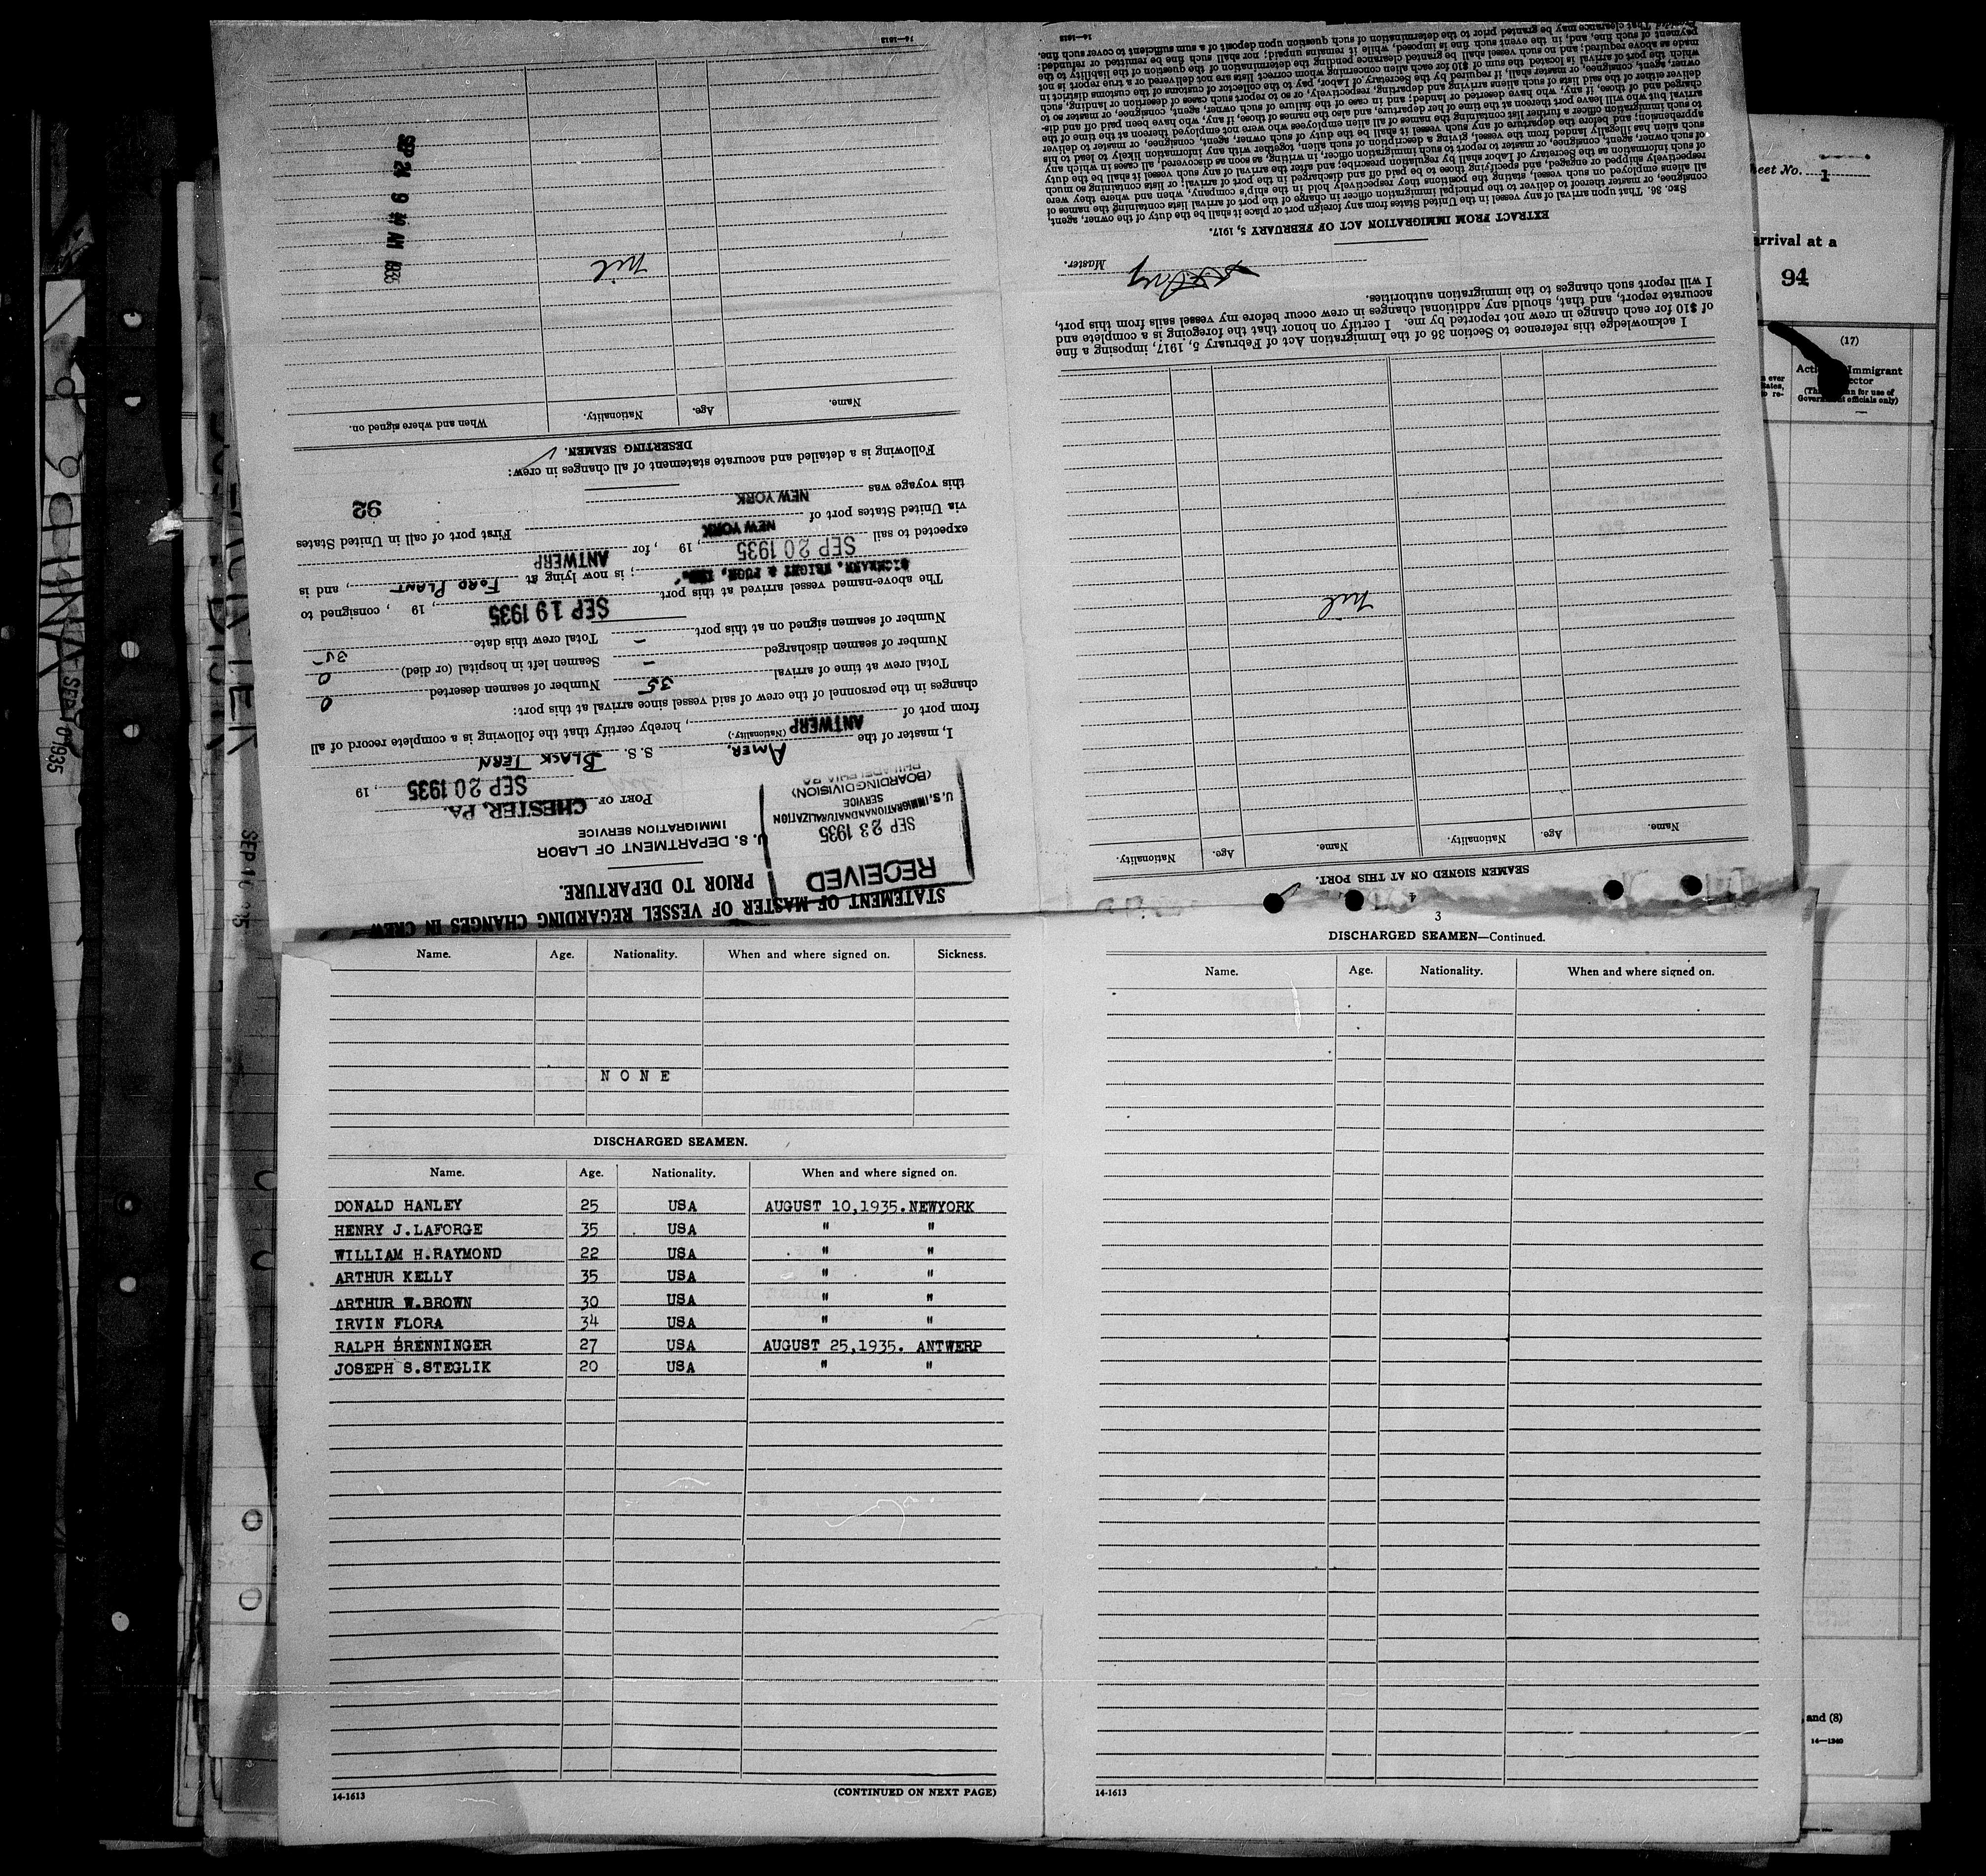 STATEMENT OF MASTER OF VESSEL REGARDING CHANGES IN CREW
PRIOR TO DEPARTURE.
RECEIVED
SEP 23 1935
U.S. IMMIGRATION AND NATURALIZATION
SERVICE
(BOARDING DIVISION)
PHILADELPHIA PA
U. S. DEPARTMENT OF LABOR
IMMIGRATION SERVICE
PORT OF CHESTER, PA.
SEP 20 1935, 19
I, master of the AMER. S. S. BLACK TERN
(Nationality.)
from port of ANTWERP, hereby certify that the following is a complete record of all
changes in the personnel of the crew of said vessel since arrival at this port:
Total crew at time of arrival 35 Number of seamen deserted 0
Number of seamen discharged - Seamen left in hospital (or died) 0
Number of seamen signed on at this port - Total crew this date 35
The above-named vessel arrived at this port SEP 19 1935, 19 , consigned to
WRIGHT & PUGH, ; is now lying at FORD PLANT, and is
expected to sail SEP 20 1935, 19 , for ANTWERP
via United States port of NEW YORK First port of call in United States
this voyage was NEW YORK
92
Following is a detailed and accurate statement of all changes in crew:
DESERTING SEAMEN.
Name. Age. Nationality. When and where signed on.
nil
SEP 24 9 AM 1935
14-1613
SEAMEN SIGNED ON AT THIS PORT.
Name. Age. Nationality. Name. Age. Nationality.
nil
I acknowledge this reference to Section 36 of the Immigration Act of February 5, 1917, imposing a fine
of $10 for each change in crew not reported by me. I certify on honor that the foregoing is a complete and
accurate report, and that, should any additional changes in crew occur before my vessel sails from this port,
I will report such changes to the immigration authorities.
Master.
EXTRACT FROM IMMIGRATION ACT OF FEBRUARY 5, 1917.
SEC. 36. That upon arrival of any vessel in the United States from any foreign port or place it shall be the duty of the owner, agent,
consignee, or master thereof to deliver to the principal immigration officer in charge of the port of arrival lists containing the names of
all aliens employed on such vessel, stating the positions they respectively hold in the ship's company, when and where they were
respectively shipped or engaged, and specifying those to be paid off and discharged in the port of arrival; or lists containing so much
of such information as the Secretary of Labor shall by regulation prescribe; and after the arrival of any such vessel it shall be the duty
of such owner, agent, consignee, or master to report to such immigration officer, in writing, as soon as discovered, all cases in which any
such alien has illegally landed from the vessel, giving a description of such alien, together with any information likely to lead to his
apprehension; and before the departure of any such vessel it shall be the duty of such owner, agent, consignee, or master to deliver
to such immigration officer a further list containing the names of all alien employees who were not employed thereon at the time of the
arrival but who will leave port thereon at the time of her departure, and also the names of those, if any, who have been paid off and dis-
charged and of those, if any, who have deserted or landed; and in case of the failure of such owner, agent, consignee, or master so to
deliver either of the said lists of such aliens arriving and departing, respectively, or so to report such cases of desertion or landing, such
owner, agent, consignee, or master shall, if required by the Secretary of Labor, pay to the collector of customs of the customs district in
which the port of arrival is located the sum of $10 for each alien concerning whom correct lists are not delivered or a true report is not
made as above required; and no such vessel shall be granted clearance pending the determination of the question of the liability to the
payment of such fine, and, in the event such fine is imposed, while it remains unpaid; nor shall such fine be remitted or refunded:
Provided, That clearance may be granted prior to the determination of such question upon deposit of a sum sufficient to cover such fine.
14-1613
Name. Age. Nationality. When and where signed on. Sickness.
NONE
DISCHARGED SEAMEN.
Name. Age. Nationality. When and where signed on.
DONALD HANLEY 25 USA AUGUST 10,1935.NEWYORK
HENRY J.LAFORGE 35 USA " "
WILLIAM H.RAYMOND 22 USA " "
ARTHUR KELLY 35 USA " "
ARTHUR W.BROWN 30 USA " "
IRVIN FLORA 34 USA " "
RALPH BRENNINGER 27 USA AUGUST 25,1935. ANTWERP
JOSEPH S.STEGLIK 20 USA " "
14-1613 (CONTINUED ON NEXT PAGE)
4
3
DISCHARGED SEAMEN—Continued.
Name. Age. Nationality. When and where signed on.
14-1613
Sheet No. 1
arrival at a
94
(17)
Immigrant
Government officials only)
and (8)
14—1240